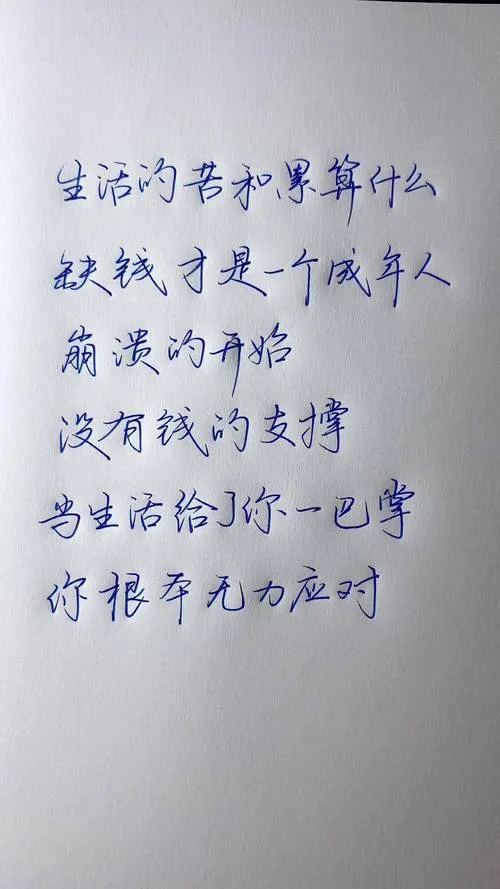 生活的苦和累算什么
缺钱才是一个成年人
崩溃的开始
没有钱的支撑
当生活给了你一巴掌
你根本无力应对